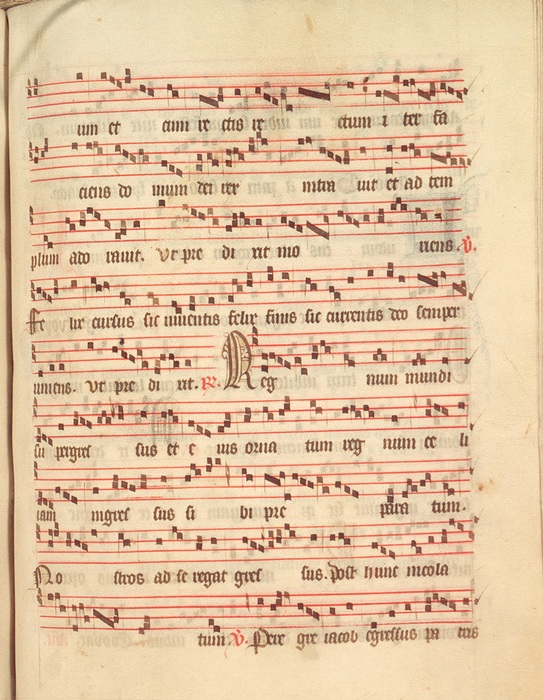 um et cum re ctis re ctum i ter fa
ciens do mum dei ter intra uit et ad tem
plum ado rauit. vt pre di xit mo riens. V.
Fe lix cursus sic uiuentis felix finis sic currentis deo semper
uiuens. vt pre di xit. R. Reg num mundi
su pergres sus et e ius orna tum reg num ce li
iam ingres sus si bi pre para tum.
No stros ad se regat gres sus. post hunc incola
tum V. Pere gre iacob egressus pa tris